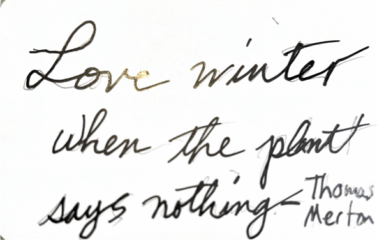 Love winter
when the plant
says nothing–
Thomas
Merton